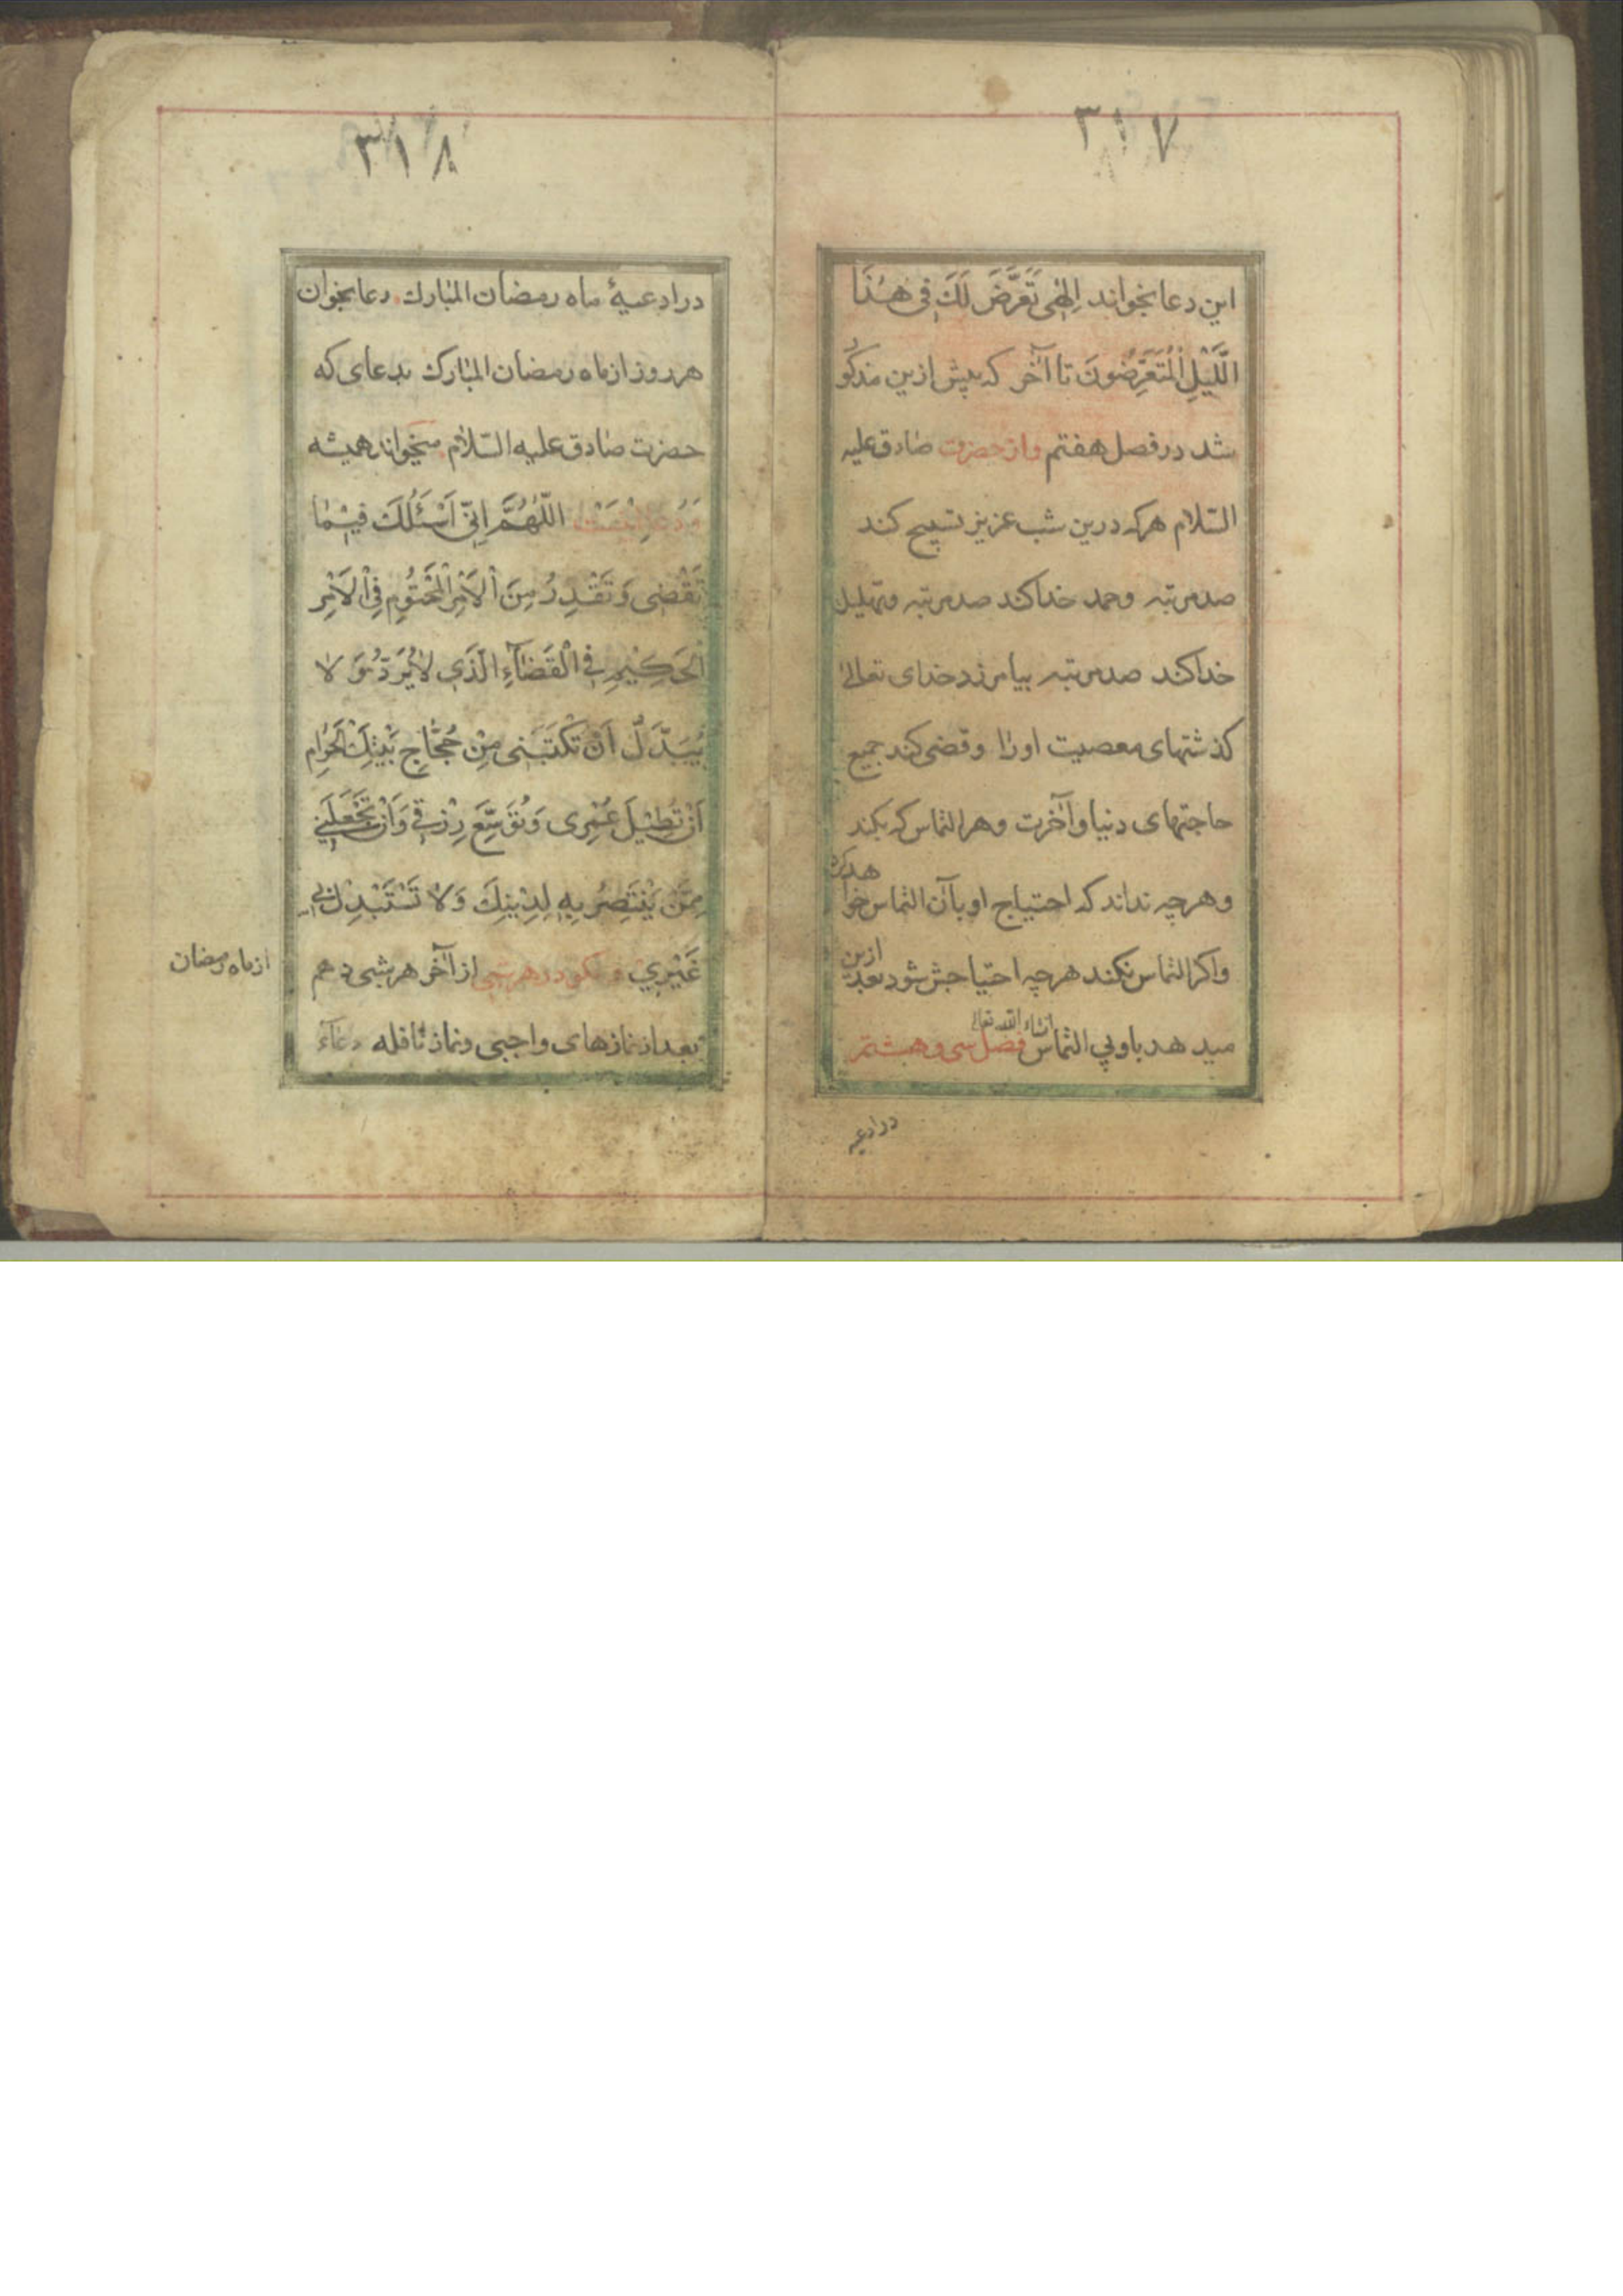 ۳۱۷
این دعا بخواند اِلٰهی تَعَرَّضَ لَكَ فی هٰذَا
اللَّیْلِ الْمُتَعَرِّضُونَ تا آخر که پیش ازین مذکور
شد در فصل هفتم و از حضرت صادق علیه
السّلام هر که درین شب عزیز تسبیح کند
صد مرتبه و حمد خدا کند صد مرتبه و تهلیل
خدا کند صد مرتبه بیامرزد خدای تعالی
گذشتهای معصیت او را و قضی کند جمیع
حاجتهای دنیا و آخرت و هر التماس که بکند
و هر چه نداند که احتیاج او بآن التماس خواهد کرد
و اکر التماس نکند هر چه احتیاجش شود بعد ازین
میدهد باو بی التماس انشاء الله تعالی فصل سی و هشتم
در ادعیه
۳۱۸
در ادعیهٔ ماه رمضان المبارك دعا بخوان
هر روز از ماه رمضان المبارك بدعای که
حضرت صادق علیه السّلام میخواند همیشه
اَللّٰهُمَّ اِنّی اَسْئَلُكَ فیمٰا
تَقْضی وَ تَقْدِرُ مِنَ الْاَمْرِ الْمَحْتُومِ فِی الْاَمْرِ
الْحَکیمِ فِی الْقَضٰآءِ الَّذی لٰا یُرَدُّ وَ لٰا
یُبَدَّلُ اَنْ تَکْتُبَنی مِنْ حُجّٰاجِ بَیْتِكَ الْحَرٰامِ
اَنْ تُطیلَ عُمْری وَ تُوَسِّعَ رِزْقی وَ اَنْ تَجْعَلَنی
مِمَّنْ یَنْتَصِرُ بِهِ لِدینِكَ وَ لٰا تَسْتَبْدِلْ بی
غَیْری و بکو در هر شبی از آخر هر شبی دهم
از ماه رمضان
بعد از نمازهای واجبی و نماز نافله دعآء